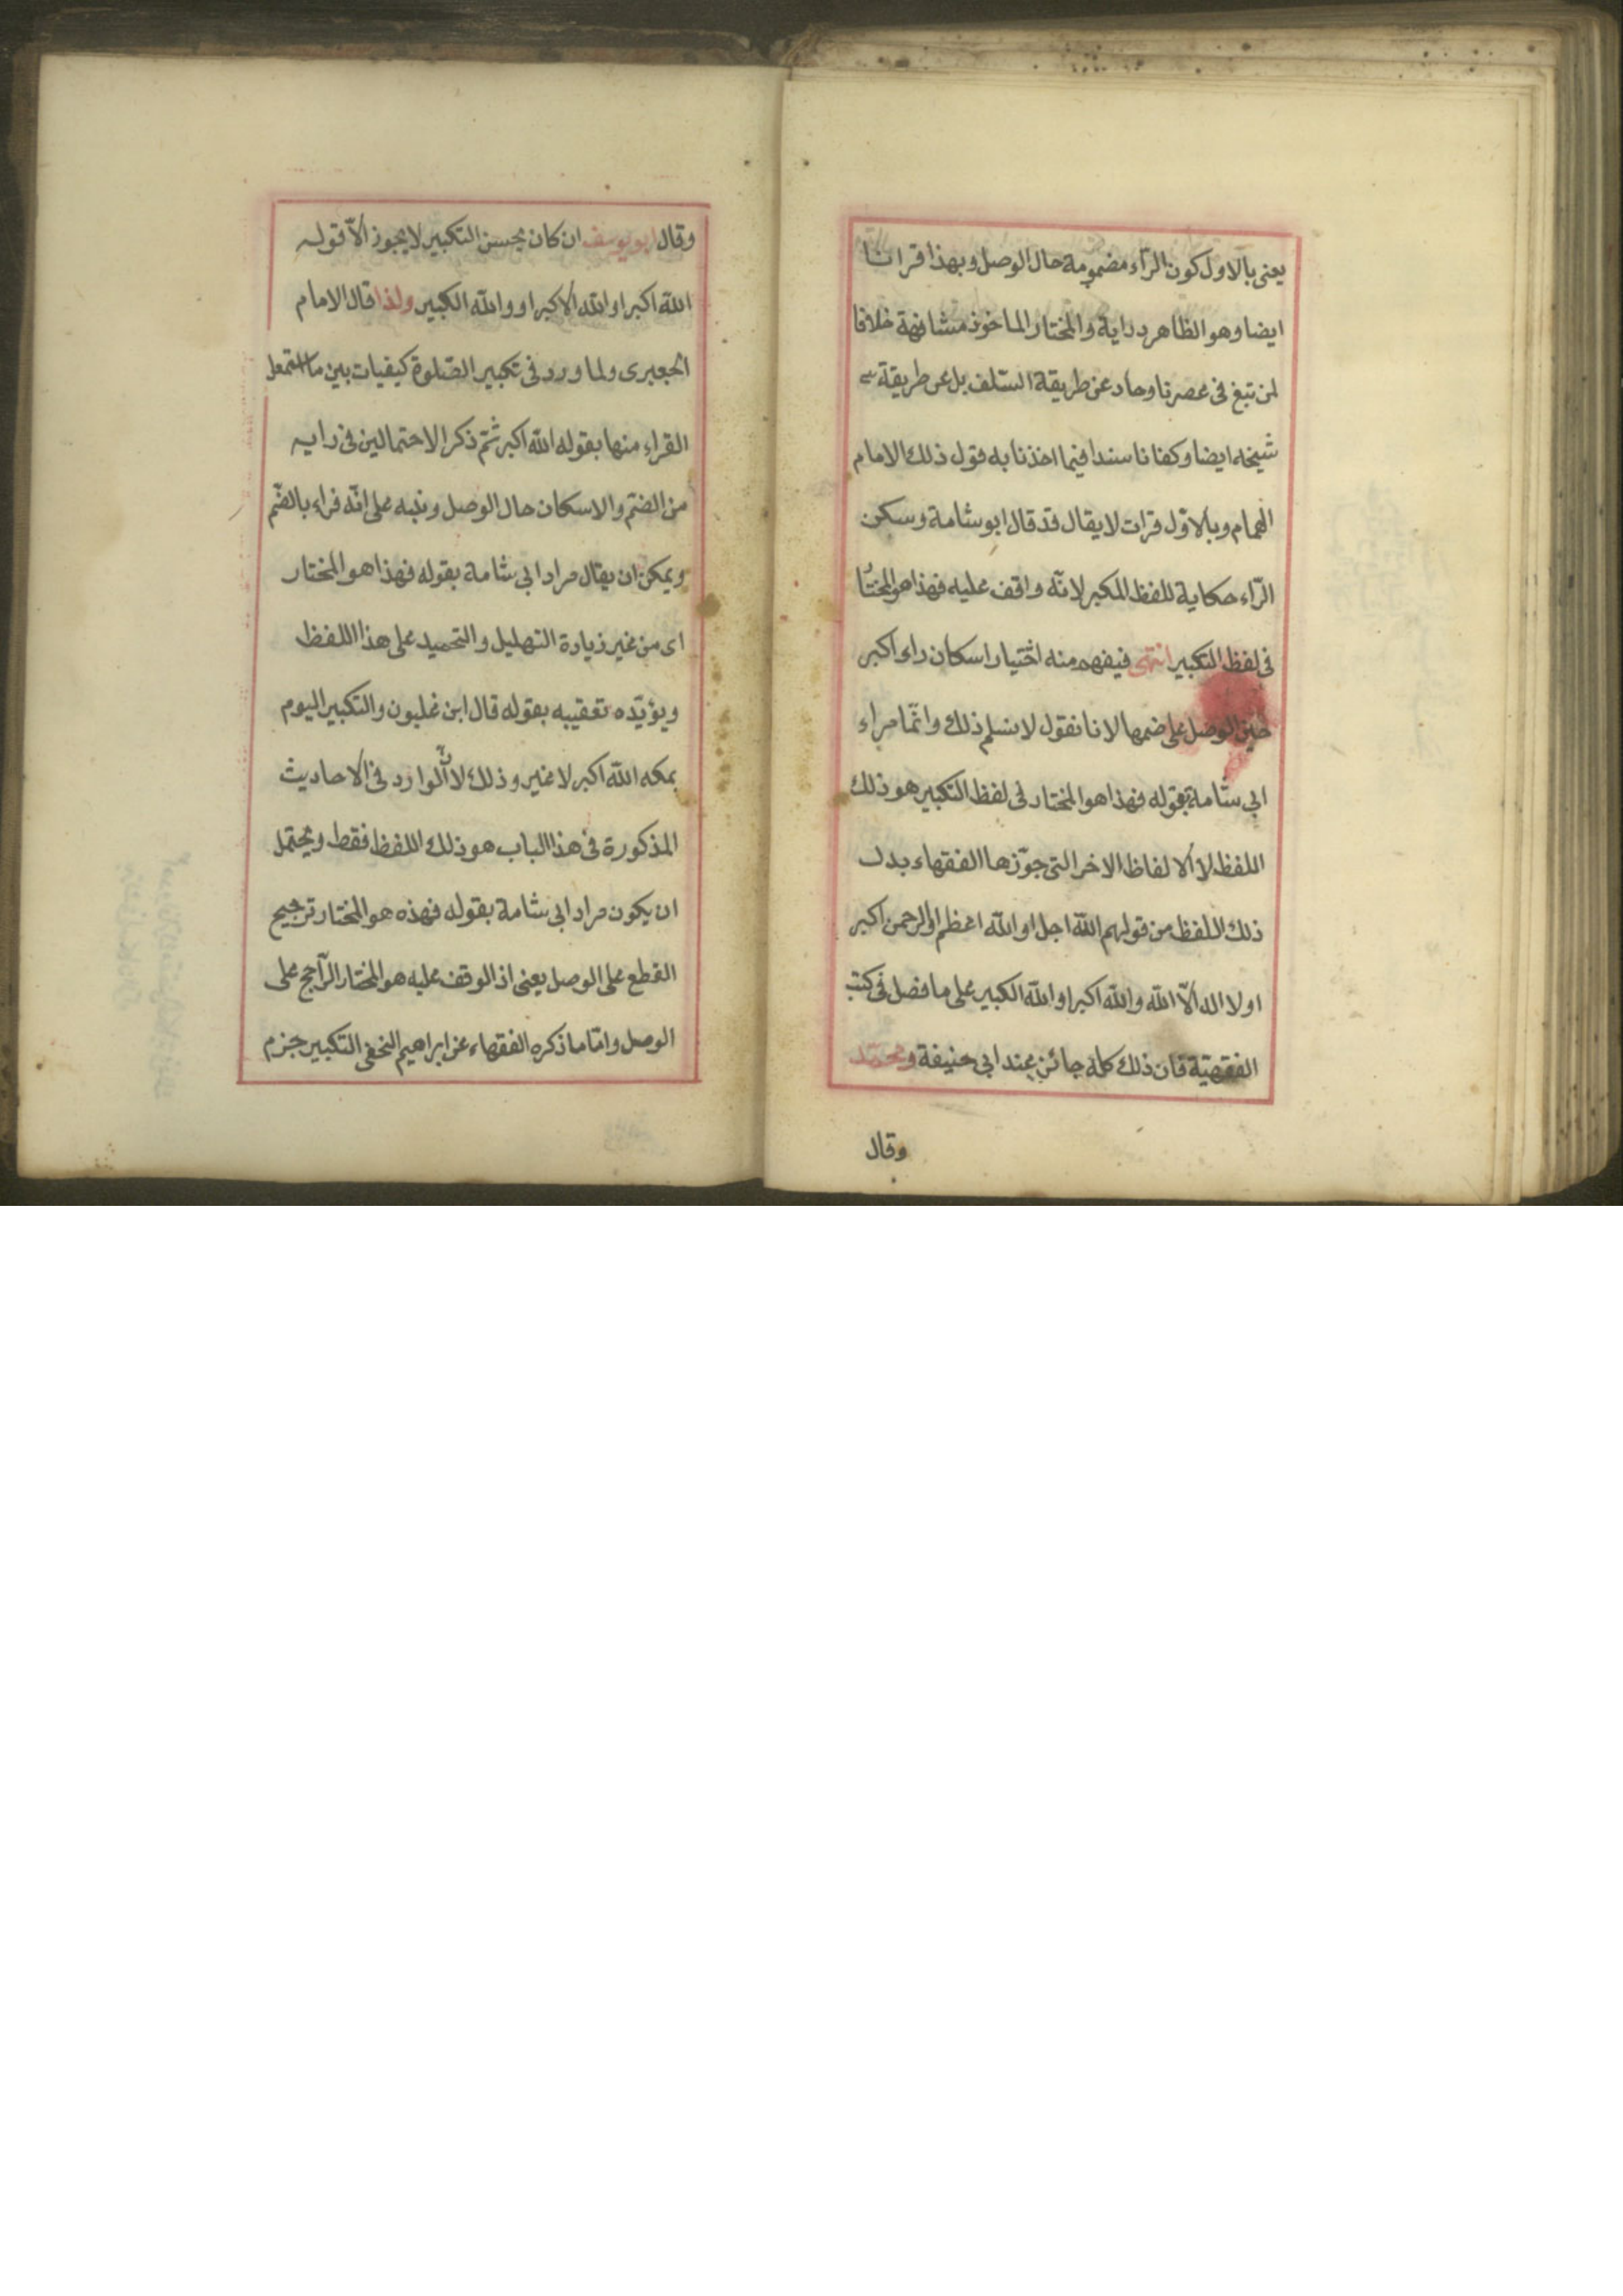 يعنى بالاول كون الرّاء مضمومة حال الوصل وبهذا قرانا
ايضا وهو الظاهر دراية والمختار الماخوذ مشافهة خلافا
لمن تبغ فى عصرنا وحاد عن طريقة السّلف بل عن طريقة
شيخه ايضا وكفانا سندا فيما اخذنا به قول ذلك الامام
الهمام وبالاوّل قرات لا يقال قد قال ابو شامة وسكن
الرّاء حكاية للفظ المكبر لانّه واقف عليه فهذا هو المختار
فى لفظ التكبير انتهى فيفهم منه اختيار اسكان راء اكبر
حين الوصل على ضمها لانا نقول لا نسلم ذلك وانّما مراء
ابى شامة بقوله فهذا هو المختار فى لفظ التكبير هو ذلك
اللفظ لا الالفاظ الاخر التى جوّزها الفقهاء بدل
ذلك اللفظ من قولهم اللّه اجل او اللّه اعظم او الرحمن اكبر
او لا اله الاّ اللّه واللّه اكبر او اللّه الكبير على ما فصل فى كتب
الفقهيّة فان ذلك كله جائز عند ابى حنيفة ومحمّد
وقال
وقال ابو يوسف ان كان يحسن التكبير لا يجوز الاّ قوله
اللّه اكبر او اللّه الاكبر او واللّه الكبير ولذا قال الامام
الجعبرى ولما ورد فى تكبير الصّلوة كيفيات بين ما استعمل
القراء منها بقوله اللّه اكبر ثمّ ذكر الاحتمالين فى رايه
من الضمّ والاسكان حال الوصل ونبه على انّه قراء بالضّم
ويمكن ان يقال مراد ابى شامة بقوله فهذا هو المختار
اى من غير زيادة التهليل والتحميد على هذا اللفظ
ويؤيّده تعقيبه بقوله قال ابن غلبون والتكبير اليوم
بمكه اللّه اكبر لا غير وذلك لانّ الوارد فى الاحاديث
المذكورة فى هذا الباب هو ذلك اللفظ فقط ويحتمل
ان يكون مراد ابى شامة بقوله فهذه هو المختار ترجيح
القطع على الوصل يعنى اذ الوقف عليه هو المختار الرّاجح على
الوصل وامّا ما ذكره الفقهاء عن ابراهيم النخعى التكبير جزم